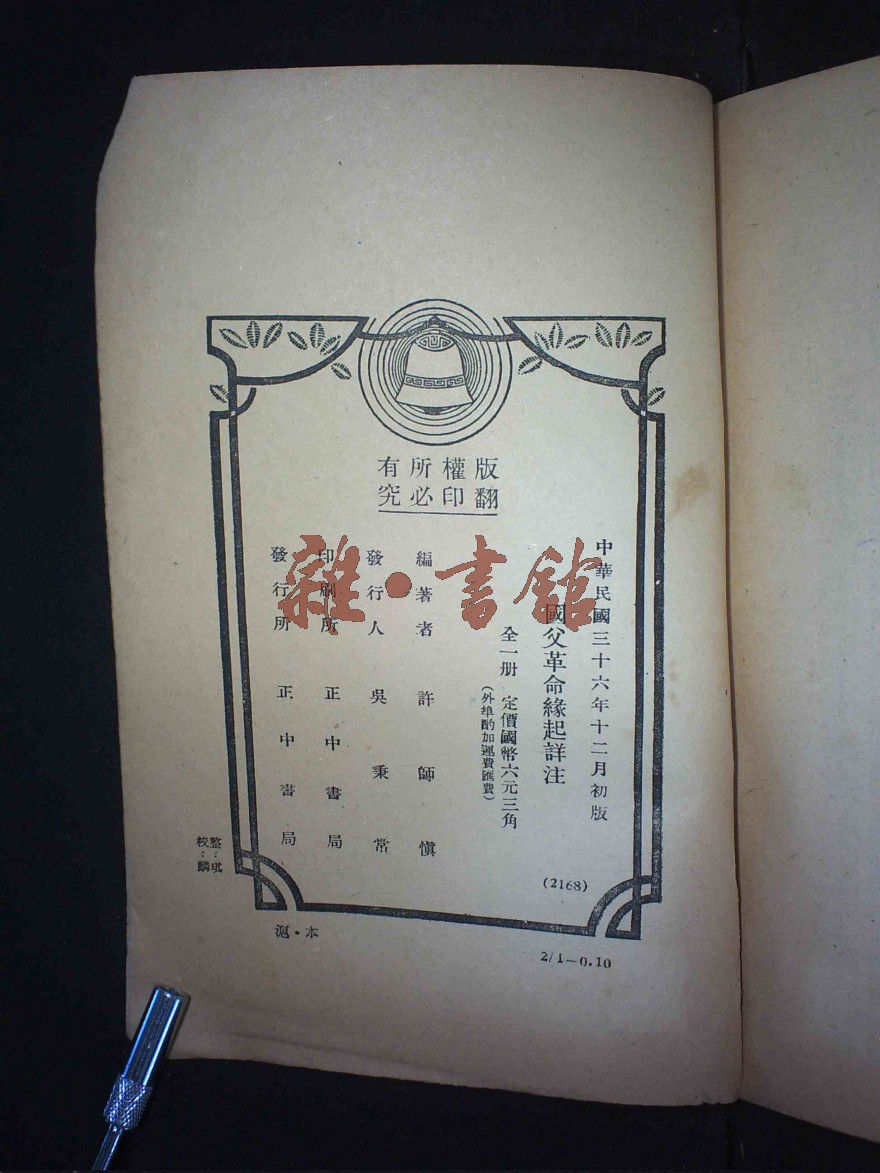 版權所有
翻印必究
中華民國三十六年十二月初版
國父革命緣起詳注
全一册 定價國幣六元三角
(外埠酌加運費匯費)
編著者 許師愼
發行人 吳秉常
印刷所 正中書局
發行所 正中書局
(2168)
整:琪
校:麟
滬·本
2/1—0.10
雜·書館